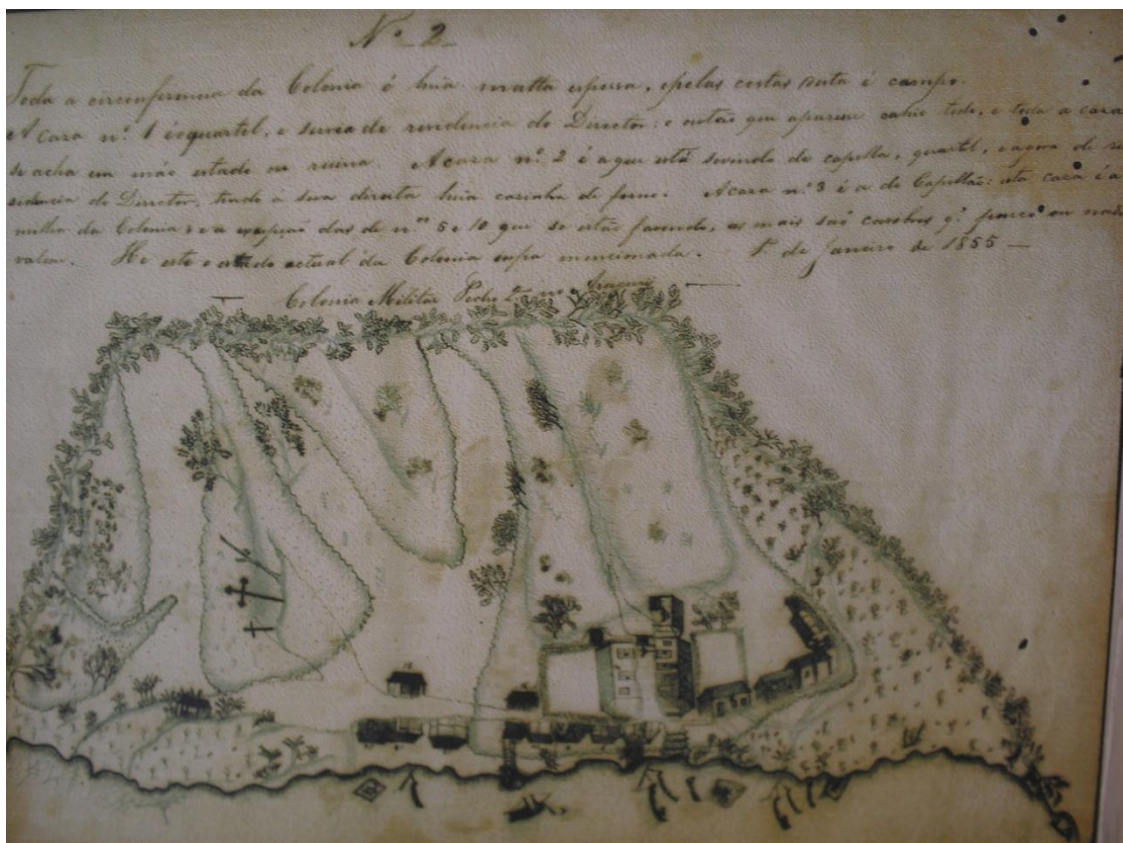 Nº 2
Toda a circonferencia da Colonia é huã matta espessa, e pelas costas desta é campo.
A caza nº 1 é o quartel, e servia de rezidencia do Director: o outão que aparece cahio todo, e toda a caza
se acha em máo estado ou ruina. A caza nº 2 é a que está servindo de capella, quartel, e agora de re
sidencia do Director, tendo á sua direita huã casinha de forno. A caza nº 3 é a do Capellão: esta caza é a
milhor da Colonia; e a das de nos 5 e 10 que se estão fazendo, as mais são cazebres qº pouco ou nada
valem. He este o estado actual da Colonia mencionada. 1º de Janeiro de 1855
Colonia Militar Pedro